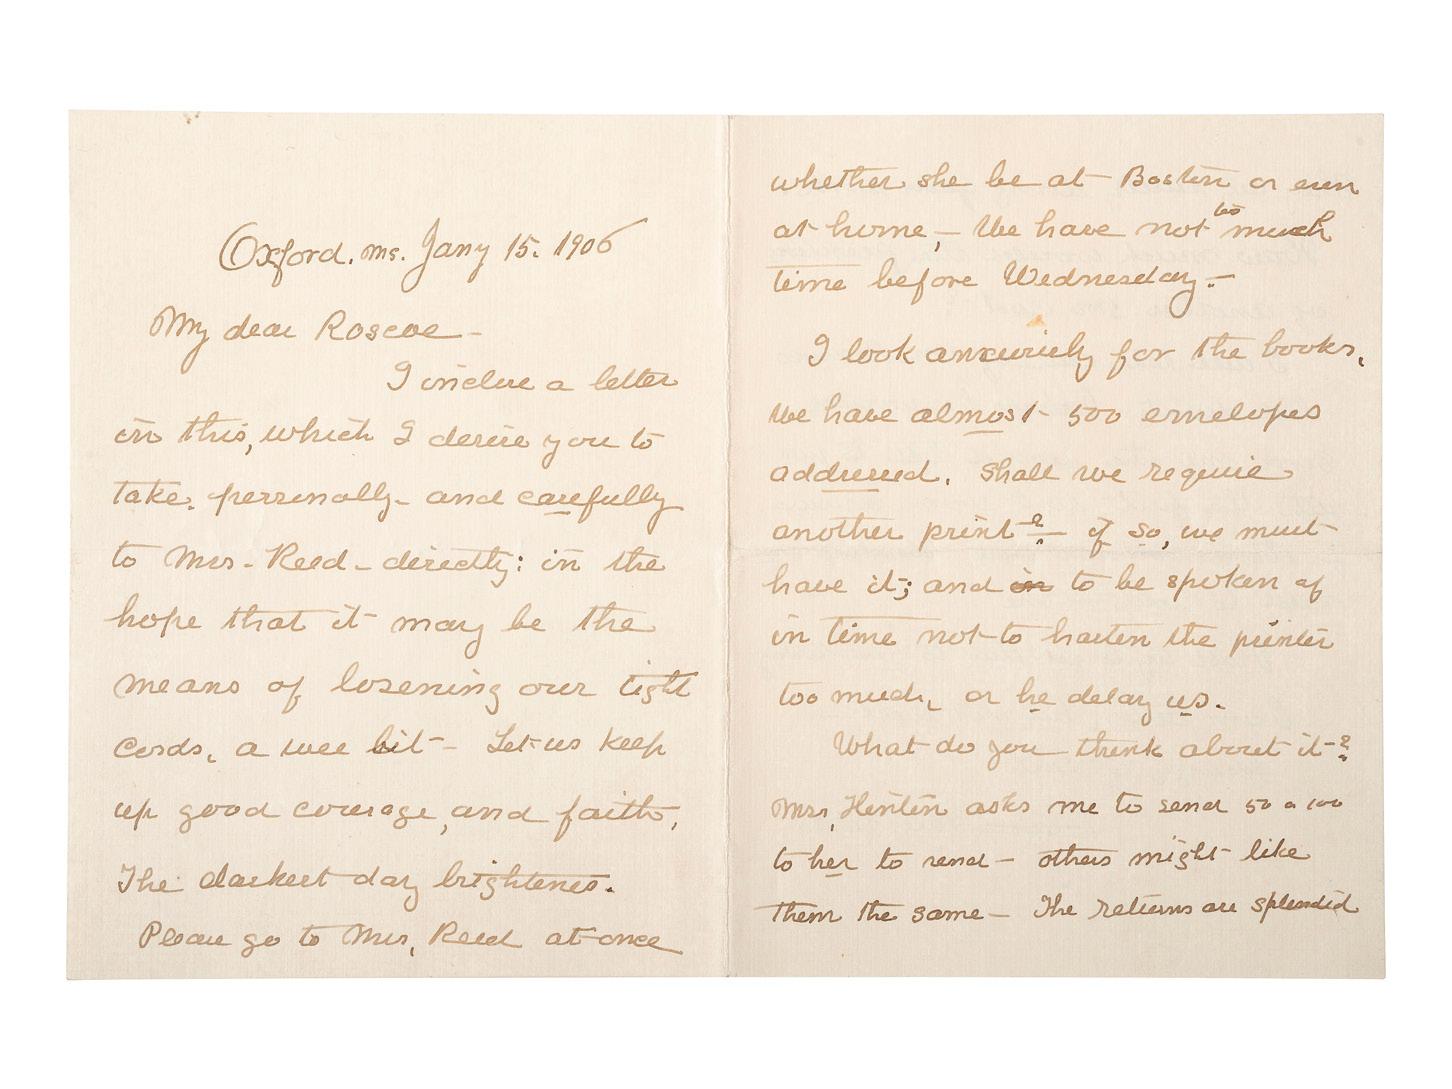 Oxford, Me. Jany 15. 1906
My dear Roscoe –
I inclose a letter
in this, which I desire you to
take, personally – and carefully
to Mrs – Reed – directly: in the
hope that it may be the
means of losening our tight
cords, a wee bit – Let us keep
up good courage, and faith,
The darkest day brightens.
Please go to Mrs, Reed at once
whether she be at Boston or even
at home, – We have not too much
time before Wednesday. –
I look anxiously for the books,
We have almost 500 envelopes
addressed. Shall we require
another print? – if so, we must
have it; and in to be spoken of
in time not to hasten the printer
too much, or he delay us.
What do you think about it – ?
Mrs, Hinten asks me to send 50 a 100
to her to send – others might like
them the same – The returns are splendid